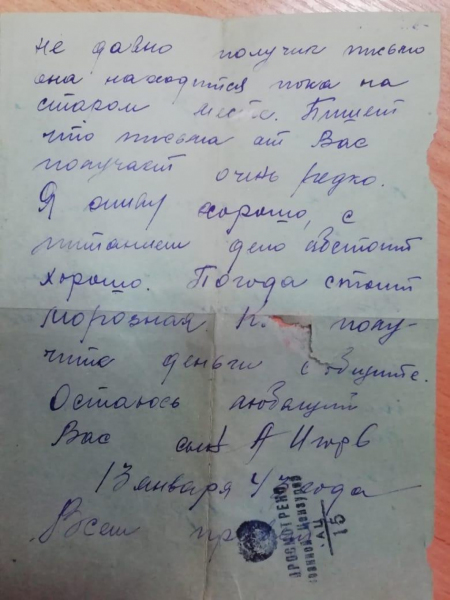 не давно получил письмо
она находится пока на
старом месте. Пишет
что письма от Вас
получает очень редко.
Я живу хорошо, с
питанием дело обстоит
хорошо. Погода стоит
морозная полу-
чите деньги сообщите.
Остаюсь любящий
Вас сын Игорь
13 января года
Всем
ПРОСМОТРЕНО
Военной Цензурой
15